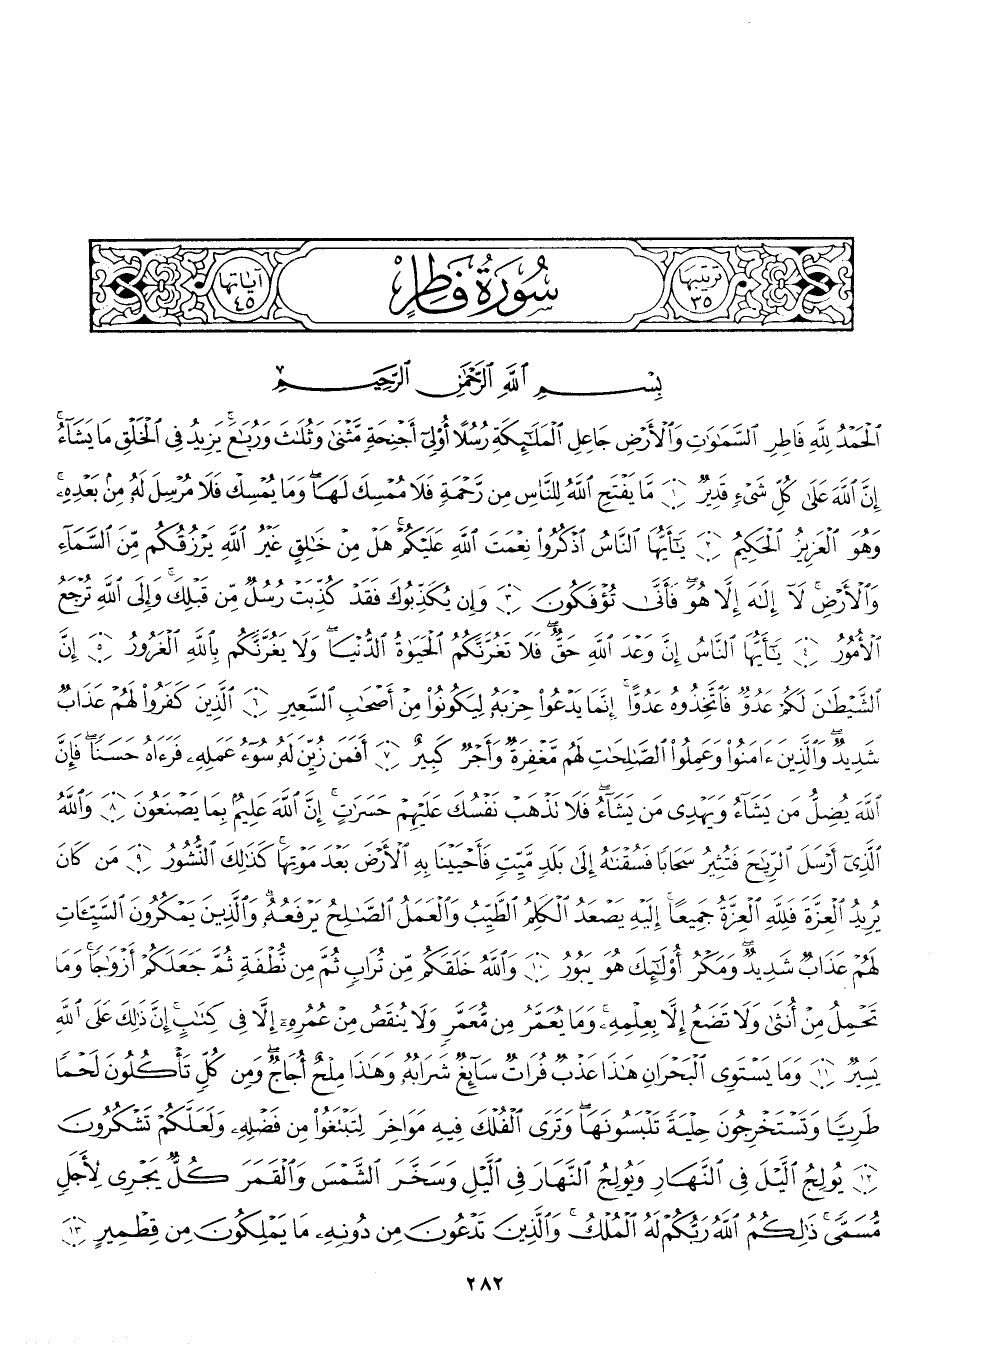 ترتيبها ٣٥ سُورَةُ فَاطِرٍ آياتها ٤٥
بِسْمِ ٱللَّهِ ٱلرَّحْمَٰنِ ٱلرَّحِيمِ
ٱلْحَمْدُ لِلَّهِ فَاطِرِ ٱلسَّمَٰوَٰتِ وَٱلْأَرْضِ جَاعِلِ ٱلْمَلَٰٓئِكَةِ رُسُلًا أُو۟لِىٓ أَجْنِحَةٍ مَّثْنَىٰ وَثُلَٰثَ وَرُبَٰعَ ۚ يَزِيدُ فِى ٱلْخَلْقِ مَا يَشَآءُ ۚ
إِنَّ ٱللَّهَ عَلَىٰ كُلِّ شَىْءٍ قَدِيرٌ ﴿١﴾ مَّا يَفْتَحِ ٱللَّهُ لِلنَّاسِ مِن رَّحْمَةٍ فَلَا مُمْسِكَ لَهَا ۖ وَمَا يُمْسِكْ فَلَا مُرْسِلَ لَهُۥ مِنۢ بَعْدِهِۦ ۚ
وَهُوَ ٱلْعَزِيزُ ٱلْحَكِيمُ ﴿٢﴾ يَٰٓأَيُّهَا ٱلنَّاسُ ٱذْكُرُوا۟ نِعْمَتَ ٱللَّهِ عَلَيْكُمْ ۚ هَلْ مِنْ خَٰلِقٍ غَيْرُ ٱللَّهِ يَرْزُقُكُم مِّنَ ٱلسَّمَآءِ
وَٱلْأَرْضِ ۚ لَآ إِلَٰهَ إِلَّا هُوَ ۖ فَأَنَّىٰ تُؤْفَكُونَ ﴿٣﴾ وَإِن يُكَذِّبُوكَ فَقَدْ كُذِّبَتْ رُسُلٌ مِّن قَبْلِكَ ۚ وَإِلَى ٱللَّهِ تُرْجَعُ
ٱلْأُمُورُ ﴿٤﴾ يَٰٓأَيُّهَا ٱلنَّاسُ إِنَّ وَعْدَ ٱللَّهِ حَقٌّ ۖ فَلَا تَغُرَّنَّكُمُ ٱلْحَيَوٰةُ ٱلدُّنْيَا ۖ وَلَا يَغُرَّنَّكُم بِٱللَّهِ ٱلْغَرُورُ ﴿٥﴾ إِنَّ
ٱلشَّيْطَٰنَ لَكُمْ عَدُوٌّ فَٱتَّخِذُوهُ عَدُوًّا ۚ إِنَّمَا يَدْعُوا۟ حِزْبَهُۥ لِيَكُونُوا۟ مِنْ أَصْحَٰبِ ٱلسَّعِيرِ ﴿٦﴾ ٱلَّذِينَ كَفَرُوا۟ لَهُمْ عَذَابٌ
شَدِيدٌ ۖ وَٱلَّذِينَ ءَامَنُوا۟ وَعَمِلُوا۟ ٱلصَّٰلِحَٰتِ لَهُم مَّغْفِرَةٌ وَأَجْرٌ كَبِيرٌ ﴿٧﴾ أَفَمَن زُيِّنَ لَهُۥ سُوٓءُ عَمَلِهِۦ فَرَءَاهُ حَسَنًا ۖ فَإِنَّ
ٱللَّهَ يُضِلُّ مَن يَشَآءُ وَيَهْدِى مَن يَشَآءُ ۖ فَلَا تَذْهَبْ نَفْسُكَ عَلَيْهِمْ حَسَرَٰتٍ ۚ إِنَّ ٱللَّهَ عَلِيمٌۢ بِمَا يَصْنَعُونَ ﴿٨﴾ وَٱللَّهُ
ٱلَّذِىٓ أَرْسَلَ ٱلرِّيَٰحَ فَتُثِيرُ سَحَابًا فَسُقْنَٰهُ إِلَىٰ بَلَدٍ مَّيِّتٍ فَأَحْيَيْنَا بِهِ ٱلْأَرْضَ بَعْدَ مَوْتِهَا ۚ كَذَٰلِكَ ٱلنُّشُورُ ﴿٩﴾ مَن كَانَ
يُرِيدُ ٱلْعِزَّةَ فَلِلَّهِ ٱلْعِزَّةُ جَمِيعًا ۚ إِلَيْهِ يَصْعَدُ ٱلْكَلِمُ ٱلطَّيِّبُ وَٱلْعَمَلُ ٱلصَّٰلِحُ يَرْفَعُهُۥ ۚ وَٱلَّذِينَ يَمْكُرُونَ ٱلسَّيِّـَٔاتِ
لَهُمْ عَذَابٌ شَدِيدٌ ۖ وَمَكْرُ أُو۟لَٰٓئِكَ هُوَ يَبُورُ ﴿١٠﴾ وَٱللَّهُ خَلَقَكُم مِّن تُرَابٍ ثُمَّ مِن نُّطْفَةٍ ثُمَّ جَعَلَكُمْ أَزْوَٰجًا ۚ وَمَا
تَحْمِلُ مِنْ أُنثَىٰ وَلَا تَضَعُ إِلَّا بِعِلْمِهِۦ ۚ وَمَا يُعَمَّرُ مِن مُّعَمَّرٍ وَلَا يُنقَصُ مِنْ عُمُرِهِۦٓ إِلَّا فِى كِتَٰبٍ ۚ إِنَّ ذَٰلِكَ عَلَى ٱللَّهِ
يَسِيرٌ ﴿١١﴾ وَمَا يَسْتَوِى ٱلْبَحْرَانِ هَٰذَا عَذْبٌ فُرَاتٌ سَآئِغٌ شَرَابُهُۥ وَهَٰذَا مِلْحٌ أُجَاجٌ ۖ وَمِن كُلٍّ تَأْكُلُونَ لَحْمًا
طَرِيًّا وَتَسْتَخْرِجُونَ حِلْيَةً تَلْبَسُونَهَا ۖ وَتَرَى ٱلْفُلْكَ فِيهِ مَوَاخِرَ لِتَبْتَغُوا۟ مِن فَضْلِهِۦ وَلَعَلَّكُمْ تَشْكُرُونَ
﴿١٢﴾ يُولِجُ ٱلَّيْلَ فِى ٱلنَّهَارِ وَيُولِجُ ٱلنَّهَارَ فِى ٱلَّيْلِ وَسَخَّرَ ٱلشَّمْسَ وَٱلْقَمَرَ كُلٌّ يَجْرِى لِأَجَلٍ
مُّسَمًّى ۚ ذَٰلِكُمُ ٱللَّهُ رَبُّكُمْ لَهُ ٱلْمُلْكُ ۚ وَٱلَّذِينَ تَدْعُونَ مِن دُونِهِۦ مَا يَمْلِكُونَ مِن قِطْمِيرٍ ﴿١٣﴾
٢٨٢